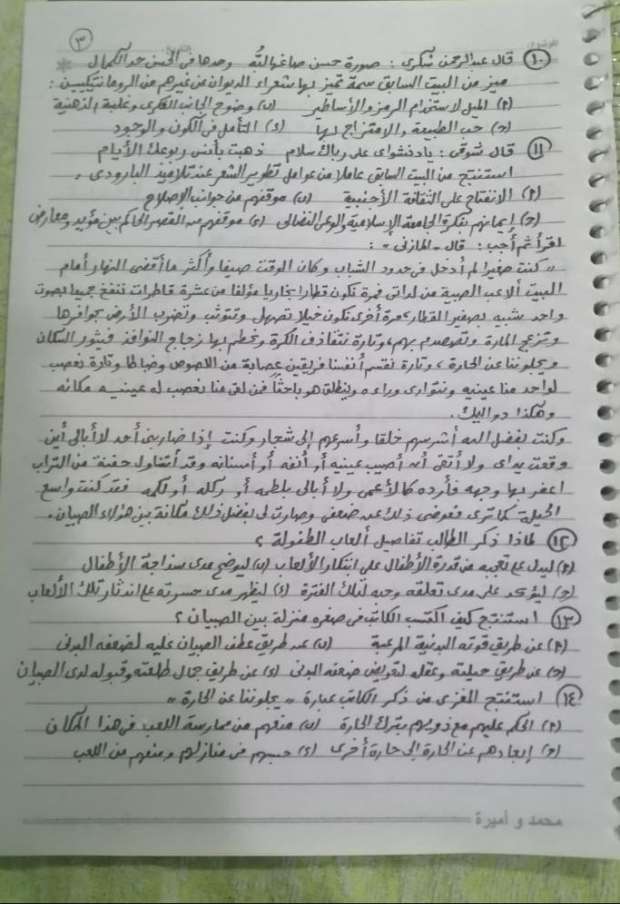 ٣
١٠ قال عبد الرحمن شكري : صورة حسن صاغها لُبُّه وحدها في الحسن حد الكمال
ميز من البيت السابق سمة تميز بها شعراء الديوان عن غيرهم من الرومانتيكيين :
(أ) الميل لاستخدام الرمز والأساطير (ب) وضوح الجانب الفكري وغلبة الذهنية
(ج) حب الطبيعة والامتزاج بها (د) التأمل في الكون والوجود
١١ قال شوقي : يا دنشواي على رباك سلام ذهبت بأنس ربوعك الأيام
استنتج من البيت السابق عاملا من عوامل تطوير الشعر عند تلاميذ البارودي .
(أ) الانفتاح على الثقافة الأجنبية (ب) موقفهم من جوانب الإصلاح
(ج) إيمانهم بفكرة الجامعة الإسلامية والوعي النضالي (د) موقفهم من القصر الحاكم بين مؤيد ومعارض
اقرأ ثم أجب : قال " المازني " :
" كنت صغيرا لم أدخل في حدود الشباب وكان الوقت صيفا وأكثر ما أقضي النهار أمام
البيت ألاعب الصبية من لداتي فمرة نكون قطارا بخاريا مؤلفا من عشرة قاطرات تنفخ جميعا بصوت
واحد شبيه بصفير القطار ومرة أخرى نكون خيلا تصهل وتتوثب وتضرب الأرض بحوافرها
وتزعج المارة وتصطدم بهم ، وتارة نتقاذف الكرة ونحطم بها زجاج النوافذ فيثور السكان
ويجلوننا عن الحارة ، وتارة نقسم أنفسنا فريقين عصابة من اللصوص وضباطا وتارة نعصب
لواحد منا عينيه ونتوارى وراءه وينطلق هو باحثا فمن لقي منا نعصب له عينيه مكانه
وهكذا دواليك .
وكنت بفضل الله أشرسهم خلقا وأسرعهم إلى شجار وكنت إذا ضاربني أحد لا أبالي أين
وقعت يداي ولا أتقي أن أصيب عينيه أو أنفه أو أسنانه وقد أتناول حفنة من التراب
أعفر بها وجهه فأرده كالأعمى ولا أبالي بلطمه أو ركله أو لكمه فقد كنت واسع
الحيلة كما ترى فعوضني ذلك عن ضعفي وصارت لي بفضل ذلك مكانة بين هؤلاء الصبيان .
١٢ لماذا ذكر الكاتب تفاصيل ألعاب الطفولة ؟
(أ) ليدل على تعجبه من قدرة الأطفال على ابتكار الألعاب (ب) ليوضح مدى سذاجة الأطفال
(ج) ليؤكد على مدى تعلقه وحبه لتلك الفترة (د) ليظهر مدى حسرته على اندثار تلك الألعاب
١٣ استنتج كيف اكتسب الكاتب في صغره منزلة بين الصبيان ؟
(أ) عن طريق قوته البدنية المرعبة (ب) عن طريق عطف الصبيان عليه لضعفه البدني
(ج) عن طريق حيلته وعقله لتعويض ضعفه البدني (د) عن طريق جمال طلعته وقبوله لدى الصبيان
١٤ استنتج المغزى من ذكر الكاتب عبارة " يجلوننا عن الحارة "
(أ) الحكم عليهم مع ذويهم بترك الحارة (ب) منعهم من ممارسة اللعب في هذا المكان
(ج) إبعادهم عن الحارة إلى حارة أخرى (د) حبسهم في منازلهم ومنعهم من اللعب
محمد و أميرة